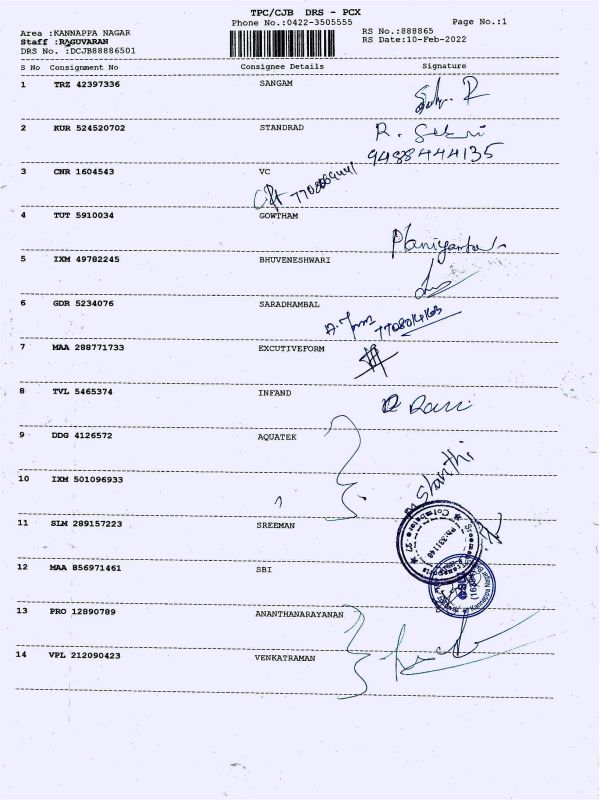 TPC/CJB DRS - PCX
Phone No.:0422-3505555 Page No.:1
Area :KANNAPPA NAGAR RS No.:888865
Staff :RAGUVARAN RS Date:10-Feb-2022
DRS No. :DCJB88886501
S No Consignment No Consignee Details Signature
1 TRZ 42397336 SANGAM
2 KUR 524520702 STANDRAD R. Selvi
9488444135
3 CNR 1604543 VC
4 TUT 5910034 GOWTHAM
5 IXM 49782245 BHUVENESHWARI
6 GDR 5234076 SARADHAMBAL
7 MAA 288771733 EXCUTIVEFORM
8 TVL 5465374 INFAND
9 DDG 4126572 AQUATEK
10 IXM 501096933 Shanthi
11 SLM 289157223 SREEMAN
12 MAA 856971461 SBI
13 PRO 12890789 ANANTHANARAYANAN
14 VPL 212090423 VENKATRAMAN